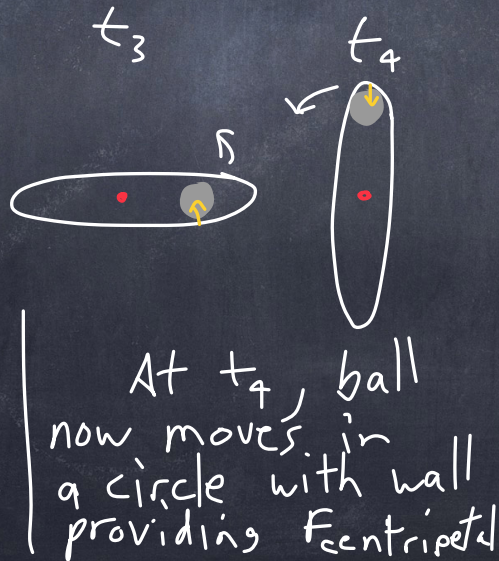 t₃ t₄
At t₄, ball
now moves in
a circle with wall
providing Fcentripetal